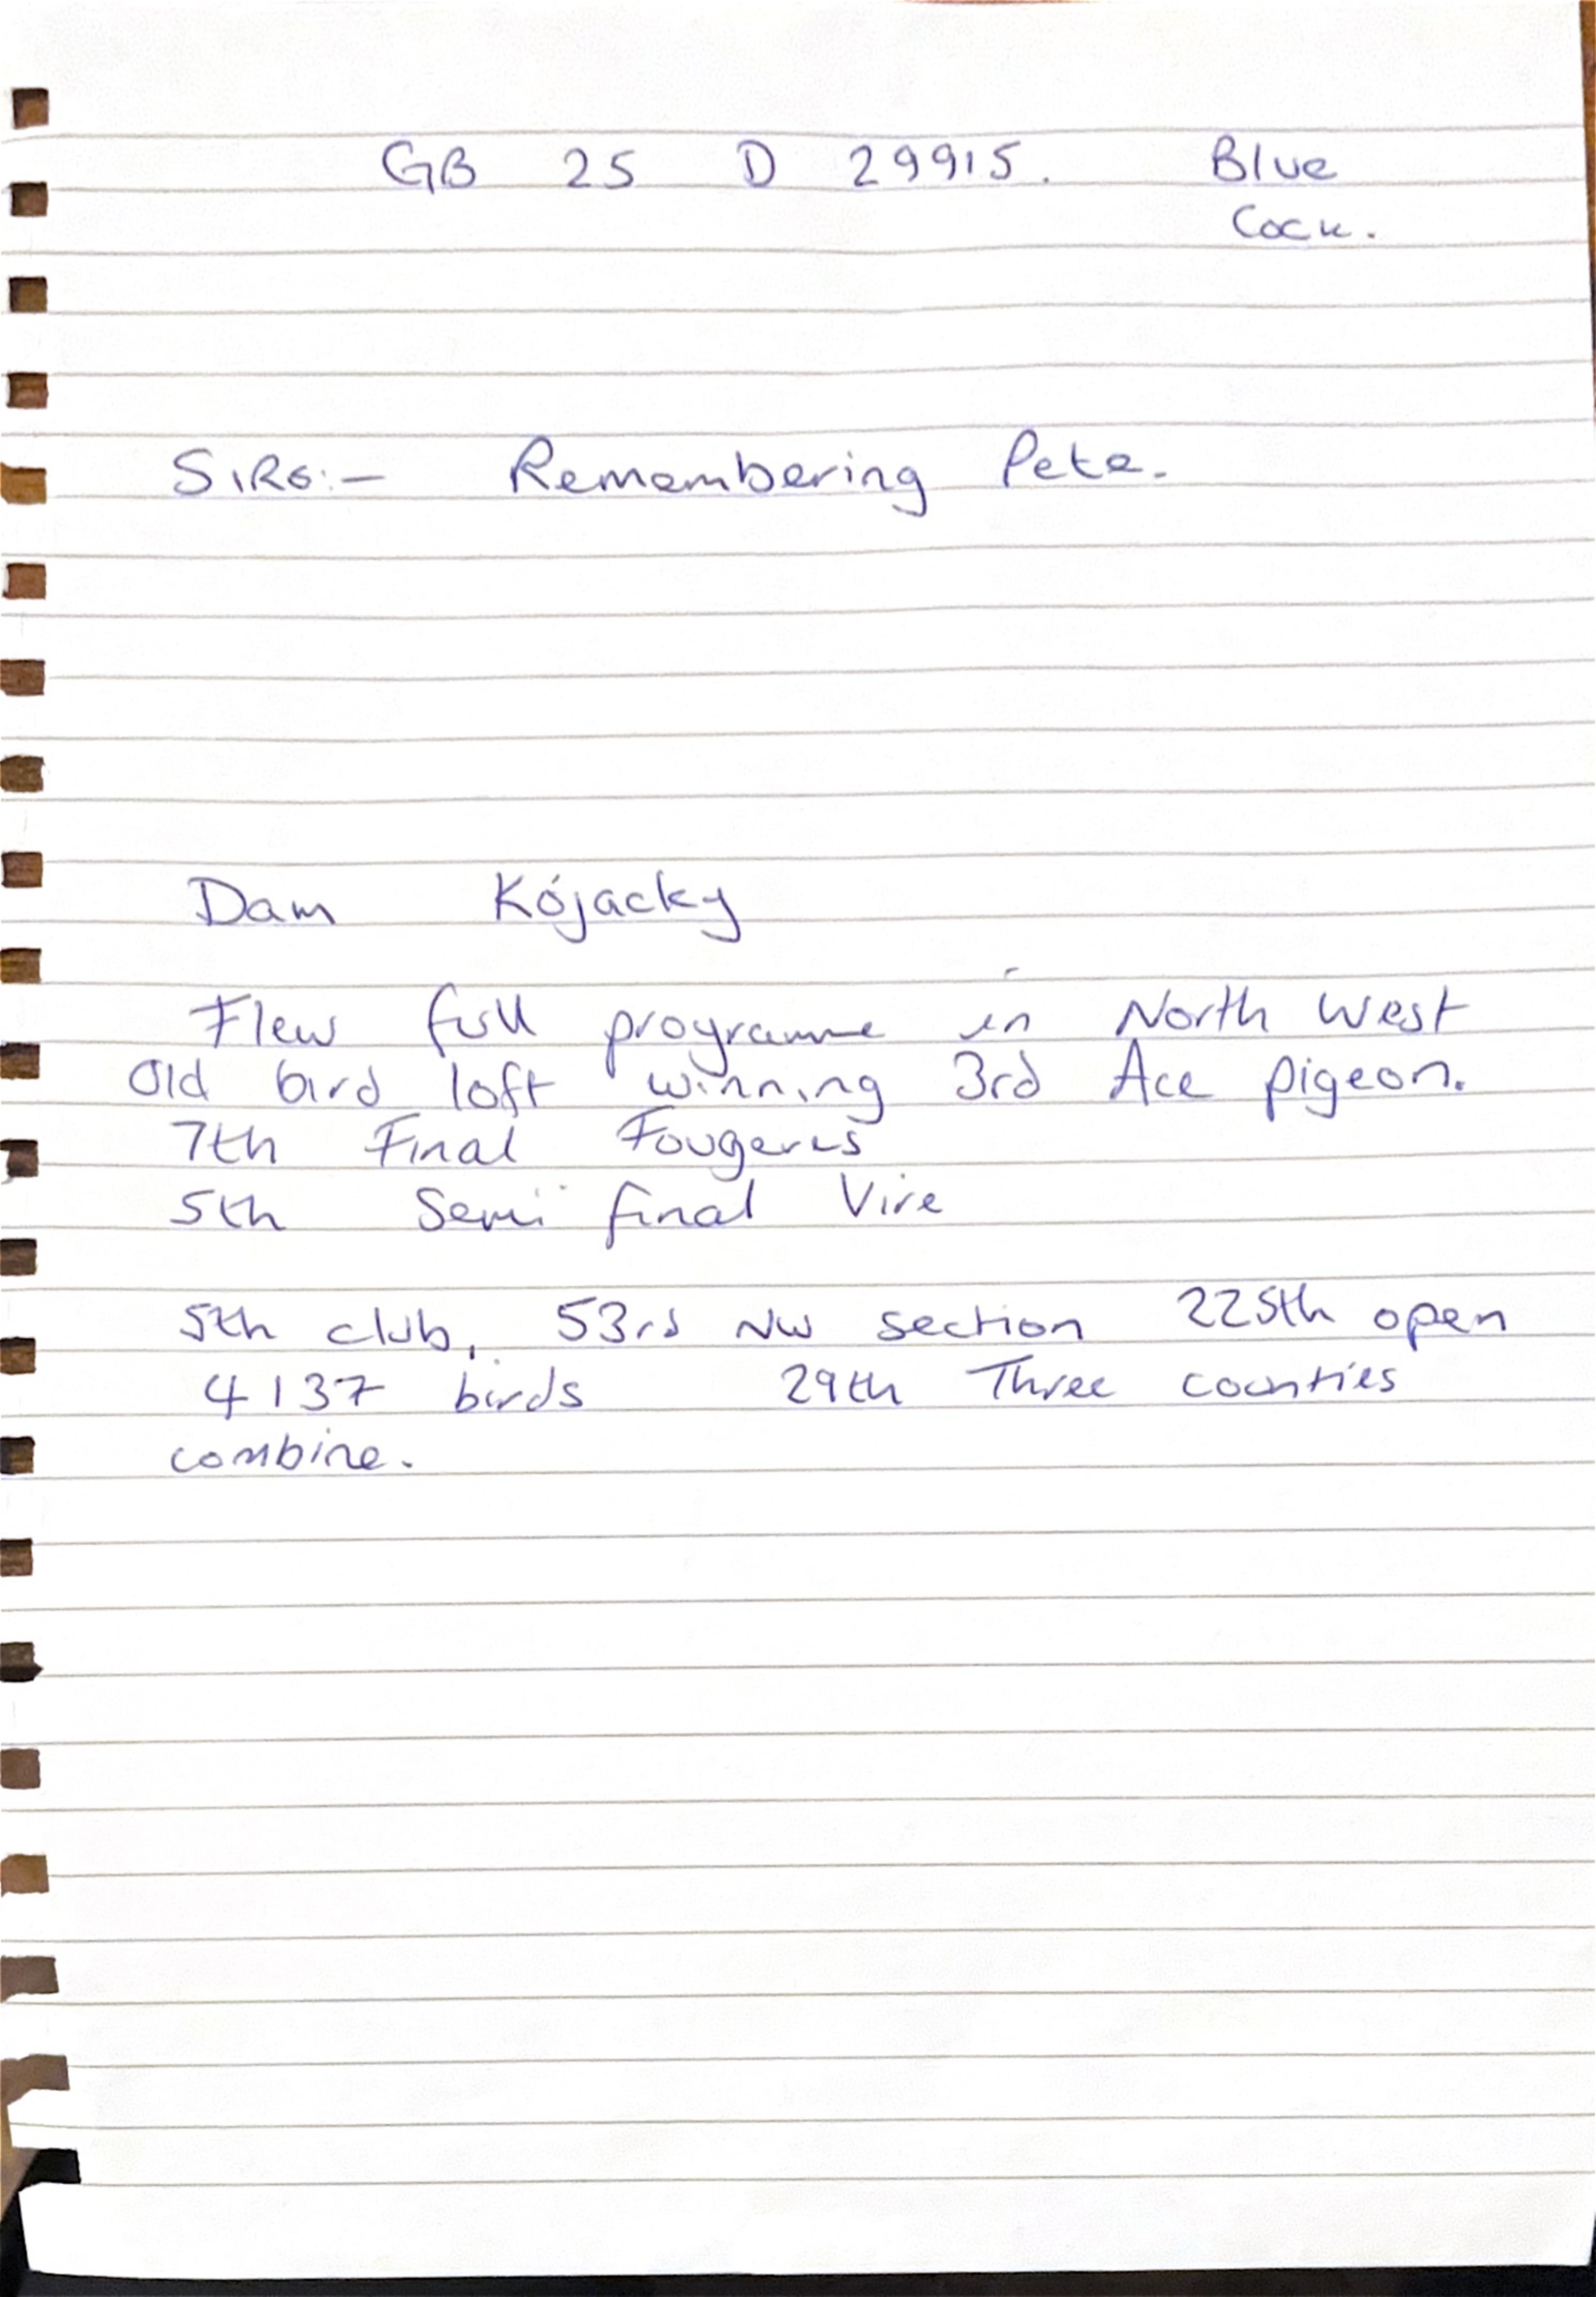 GB 25 D 29915. Blue
Cock.
SIRE:- Remembering Pete.
Dam Kojacky
Flew full programme in North West
Old bird loft winning 3rd Ace pigeon.
7th Final Fougeres
5th Semi final Vire
5th club, 53rd NW section 225th open
4137 birds 29th Three counties
combine.